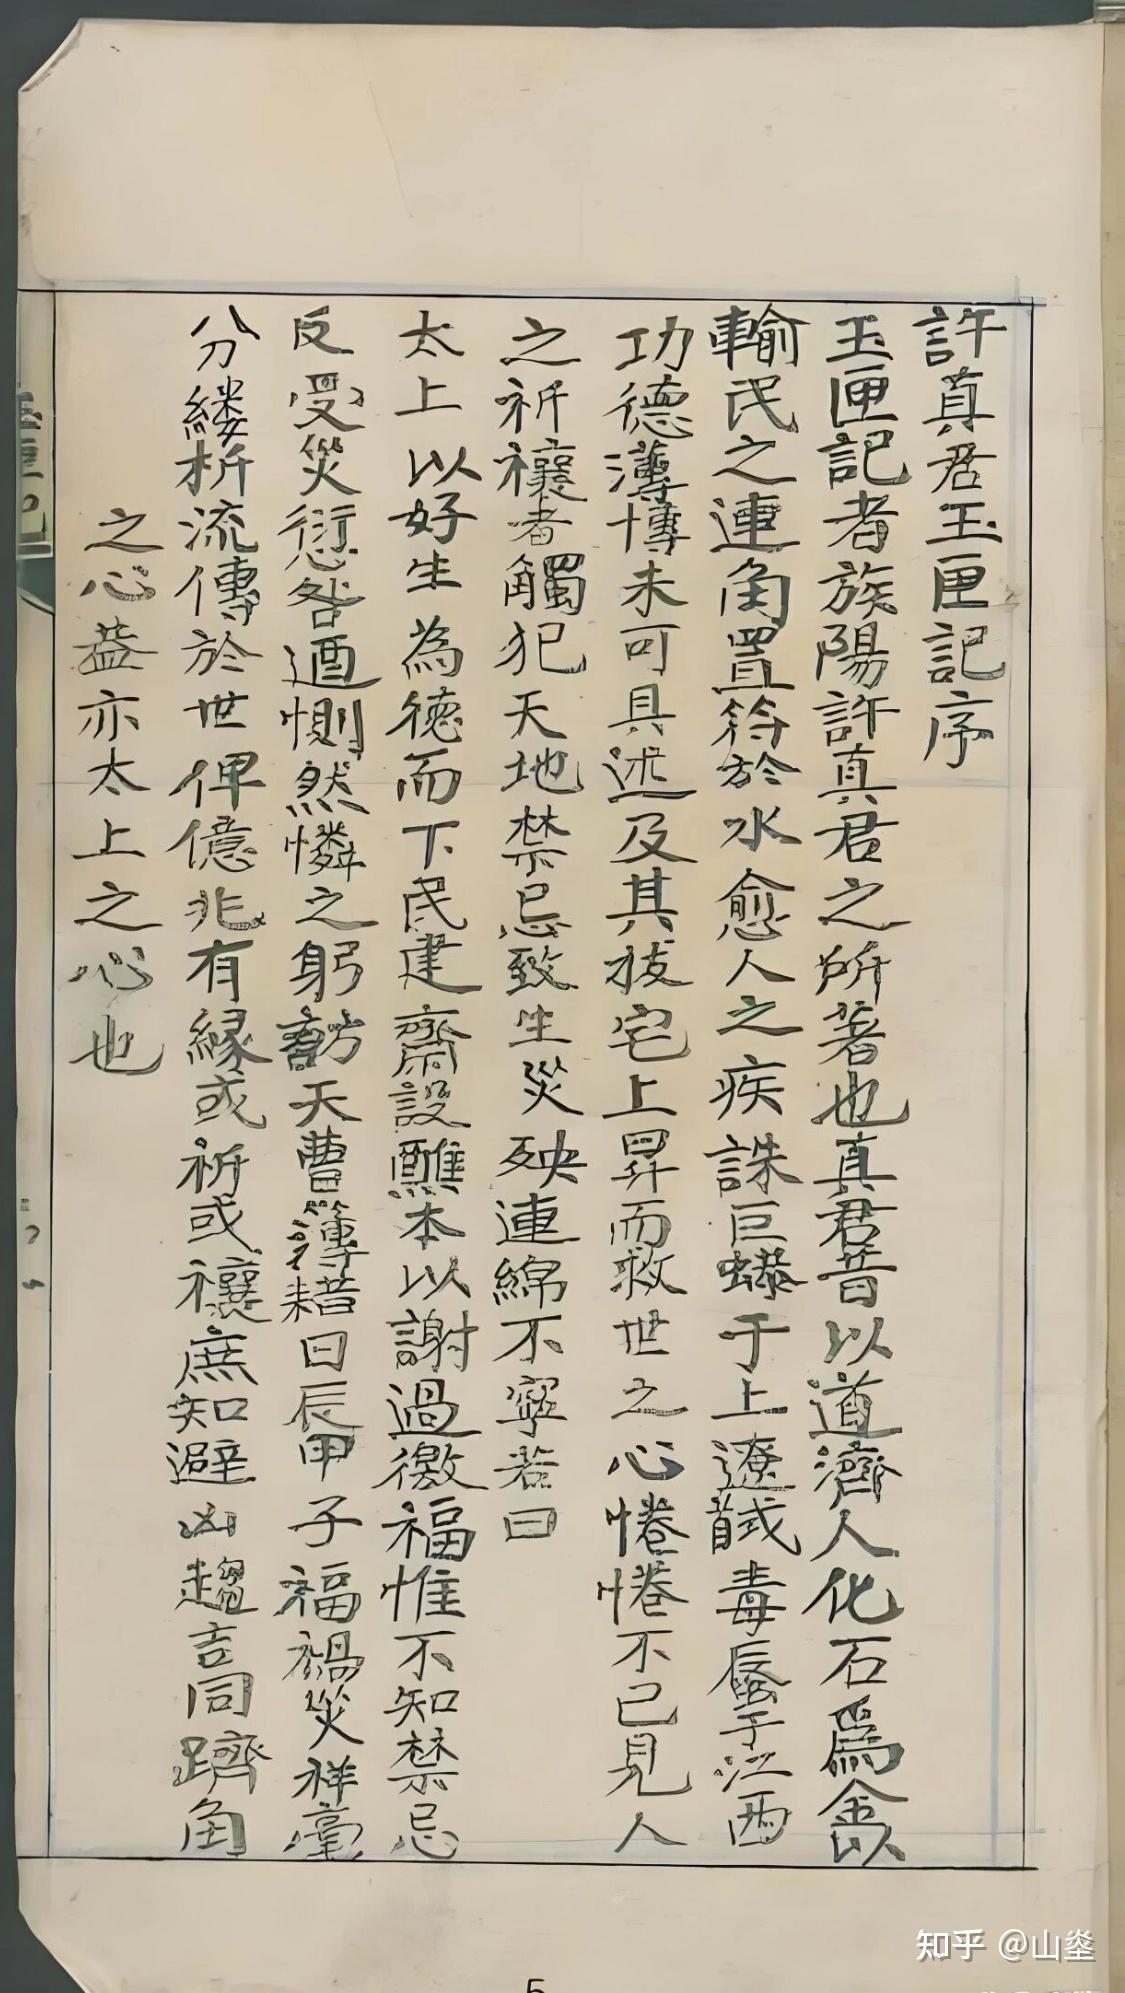 許真君玉匣記序
玉匣記者族陽許真君之所著也真君昔以道濟人化石爲金以
輸民之逋角置符於水愈人之疾誅巨蟒于上遼馘毒蜃于江西
功德薄博未可具述及其拔宅上昇而救世之心惓惓不已見人
之祈禳者觸犯天地禁忌致生災殃連綿不寧若曰
太上以好生為德而下民建齋設醮本以謝過徼福惟不知禁忌
反受災愆咎迺惻然憐之躬訪天曹簿耤曰辰甲子福禍災祥毫
分縷析流傳於世俾億兆有緣或祈或禳庶知避凶趨吉同躋角
之心葢亦太上之心也
知乎 @山埊
5